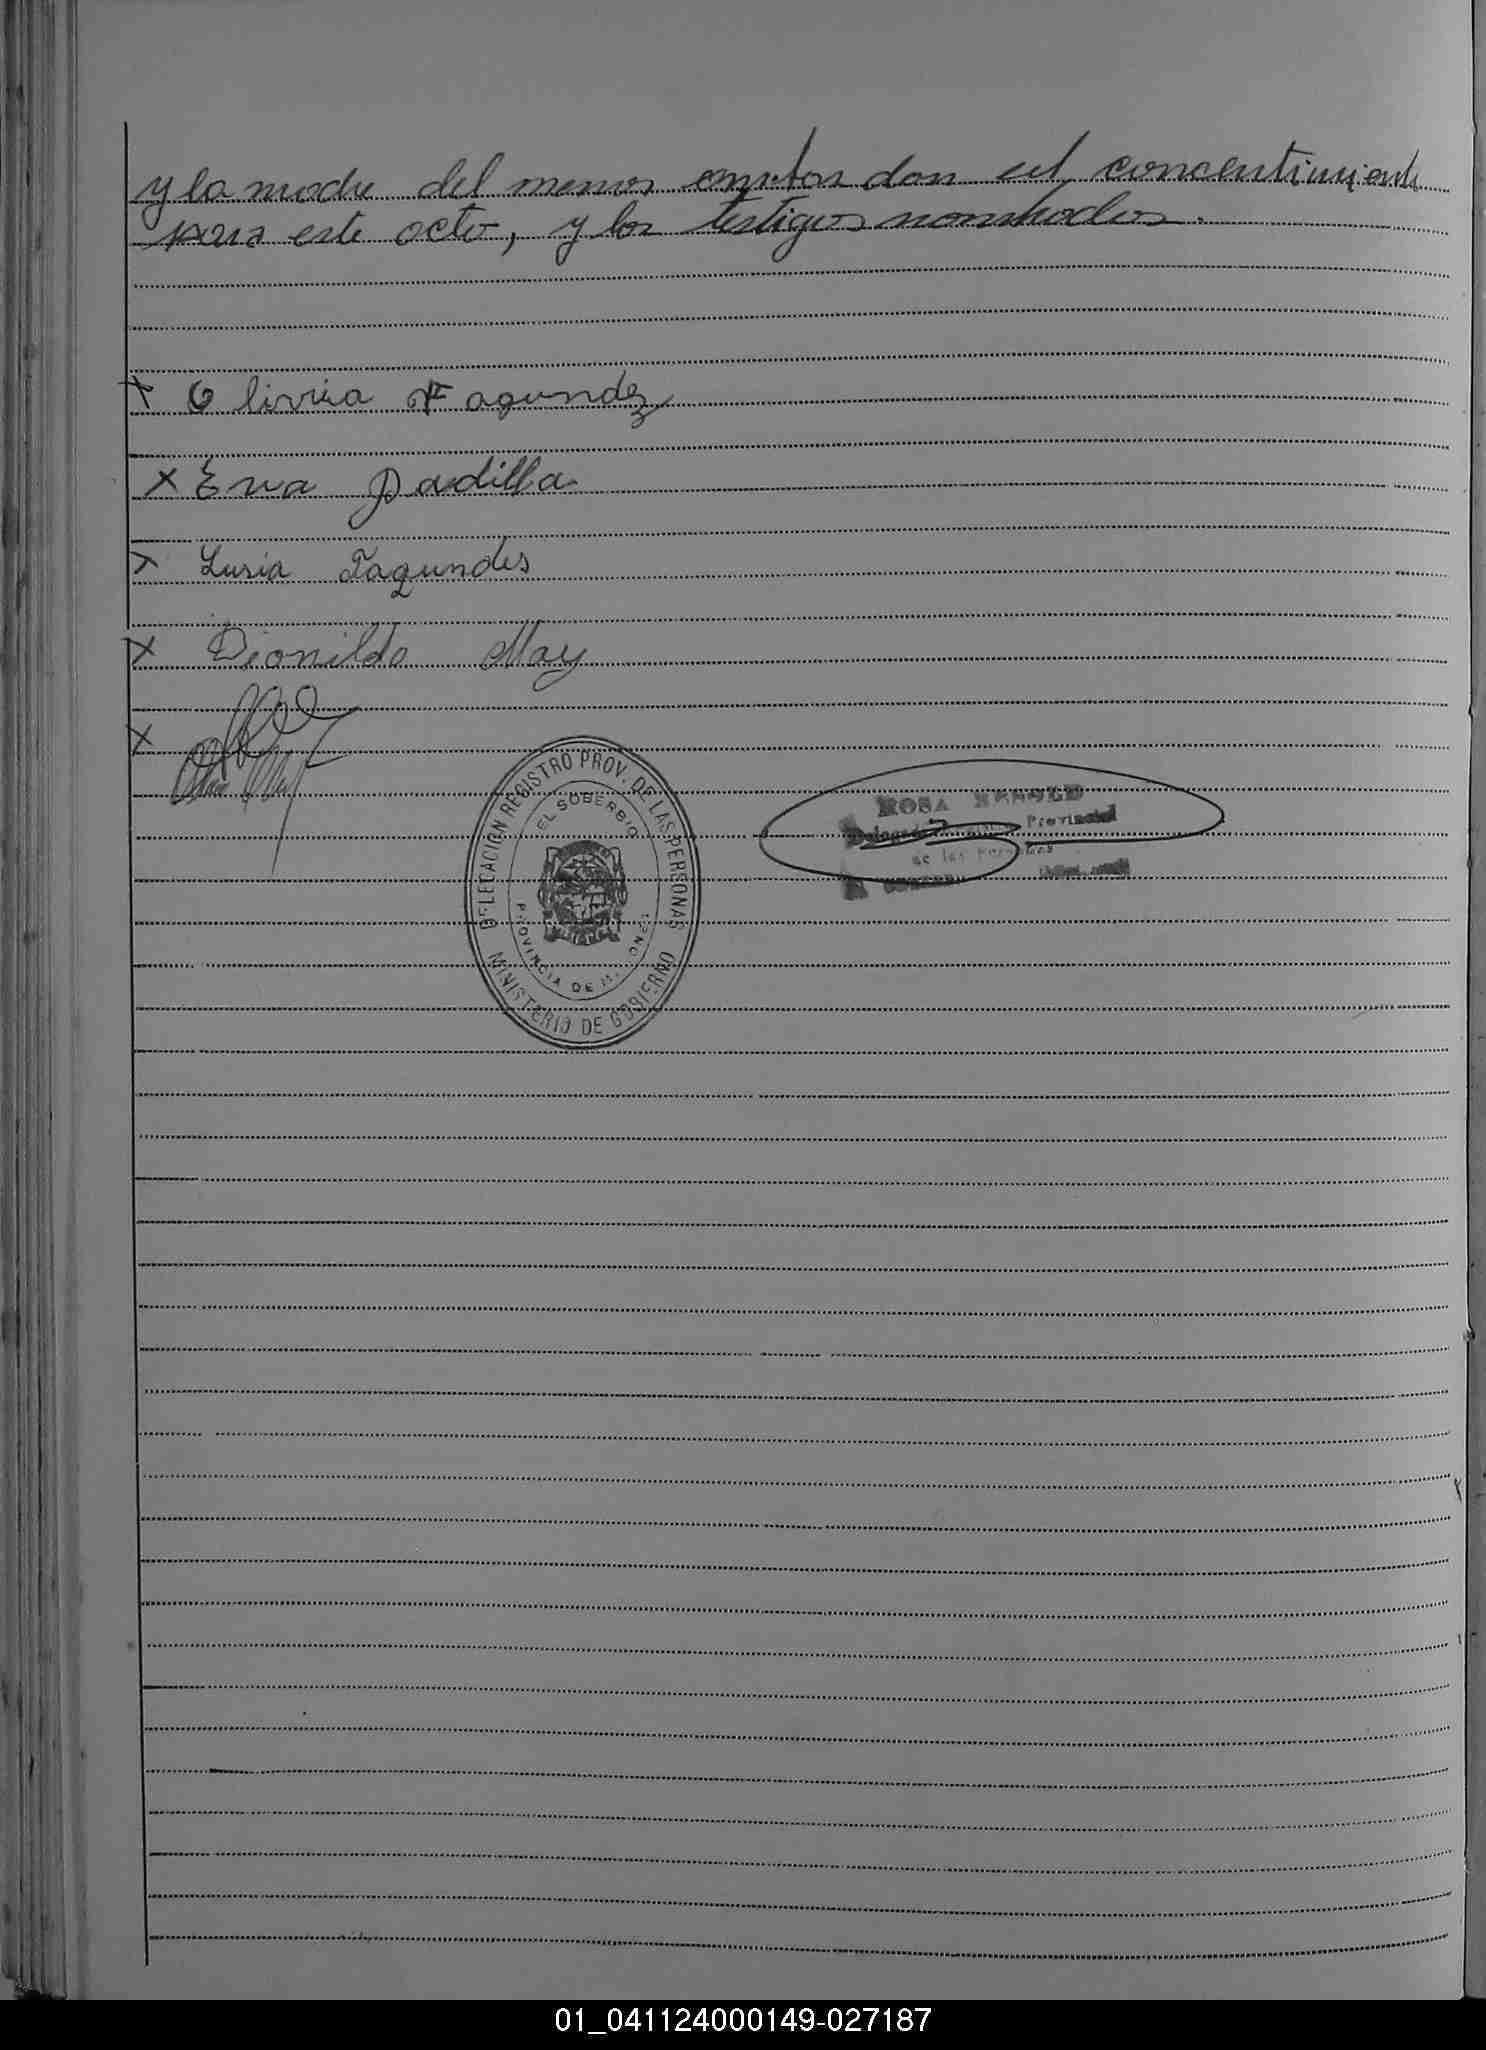 y la madre del menor ambas dan el concentimiento
para este acto, y los testigos nombrados.
x Olivia Fagundez
x Eva Padilla
x Lusia Fagundes
x Dionildo May
x
DELEGACIÓN REGISTRO PROV. DE LAS PERSONAS
EL SOBERBIO
PROVINCIA DE MISIONES
MINISTERIO DE GOBIERNO
ROSA
Delegada Provincial
de las Personas
01_041124000149-027187